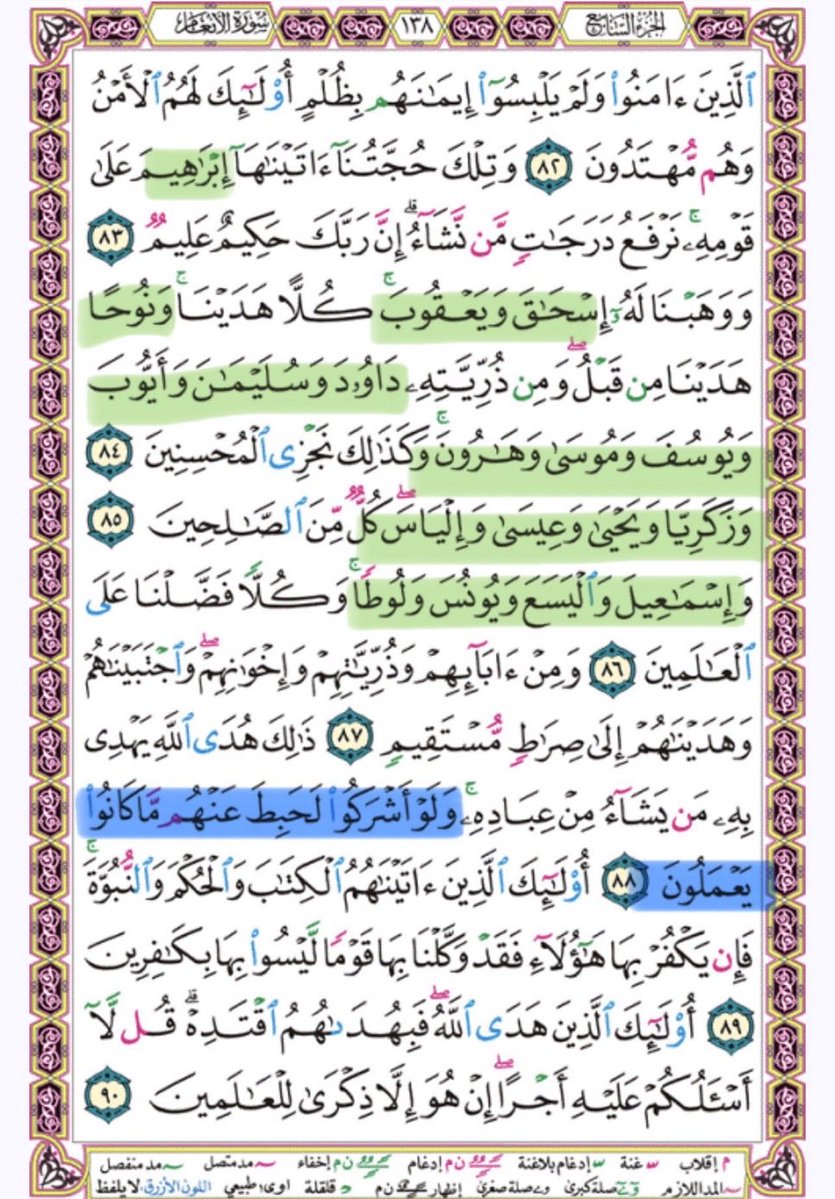 الجزء السابع ١٣٨ سورة الأنعام
ٱلَّذِينَ ءَامَنُوا۟ وَلَمْ يَلْبِسُوٓا۟ إِيمَٰنَهُم بِظُلْمٍ أُو۟لَٰٓئِكَ لَهُمُ ٱلْأَمْنُ
وَهُم مُّهْتَدُونَ ٨٢ وَتِلْكَ حُجَّتُنَآ ءَاتَيْنَٰهَآ إِبْرَٰهِيمَ عَلَىٰ
قَوْمِهِۦ ۚ نَرْفَعُ دَرَجَٰتٍ مَّن نَّشَآءُ ۗ إِنَّ رَبَّكَ حَكِيمٌ عَلِيمٌ ٨٣
وَوَهَبْنَا لَهُۥٓ إِسْحَٰقَ وَيَعْقُوبَ ۚ كُلًّا هَدَيْنَا ۚ وَنُوحًا
هَدَيْنَا مِن قَبْلُ ۖ وَمِن ذُرِّيَّتِهِۦ دَاوُۥدَ وَسُلَيْمَٰنَ وَأَيُّوبَ
وَيُوسُفَ وَمُوسَىٰ وَهَٰرُونَ ۚ وَكَذَٰلِكَ نَجْزِى ٱلْمُحْسِنِينَ ٨٤
وَزَكَرِيَّا وَيَحْيَىٰ وَعِيسَىٰ وَإِلْيَاسَ ۖ كُلٌّ مِّنَ ٱلصَّٰلِحِينَ ٨٥
وَإِسْمَٰعِيلَ وَٱلْيَسَعَ وَيُونُسَ وَلُوطًا ۚ وَكُلًّا فَضَّلْنَا عَلَى
ٱلْعَٰلَمِينَ ٨٦ وَمِنْ ءَابَآئِهِمْ وَذُرِّيَّٰتِهِمْ وَإِخْوَٰنِهِمْ ۖ وَٱجْتَبَيْنَٰهُمْ
وَهَدَيْنَٰهُمْ إِلَىٰ صِرَٰطٍ مُّسْتَقِيمٍ ٨٧ ذَٰلِكَ هُدَى ٱللَّهِ يَهْدِى
بِهِۦ مَن يَشَآءُ مِنْ عِبَادِهِۦ ۚ وَلَوْ أَشْرَكُوا۟ لَحَبِطَ عَنْهُم مَّا كَانُوا۟
يَعْمَلُونَ ٨٨ أُو۟لَٰٓئِكَ ٱلَّذِينَ ءَاتَيْنَٰهُمُ ٱلْكِتَٰبَ وَٱلْحُكْمَ وَٱلنُّبُوَّةَ ۚ
فَإِن يَكْفُرْ بِهَا هَٰٓؤُلَآءِ فَقَدْ وَكَّلْنَا بِهَا قَوْمًا لَّيْسُوا۟ بِهَا بِكَٰفِرِينَ
٨٩ أُو۟لَٰٓئِكَ ٱلَّذِينَ هَدَى ٱللَّهُ ۖ فَبِهُدَىٰهُمُ ٱقْتَدِهْ ۗ قُل لَّآ
أَسْـَٔلُكُمْ عَلَيْهِ أَجْرًا ۖ إِنْ هُوَ إِلَّا ذِكْرَىٰ لِلْعَٰلَمِينَ ٩٠
م إقلاب غنة إدغام بلاغنة ن م إدغام ن م إخفاء مد متصل مد منفصل
المد اللازم صلة كبرى صلة صغرى إظهار ن م قلقلة اوى طبيعي اللون الأزرق لا يلفظ